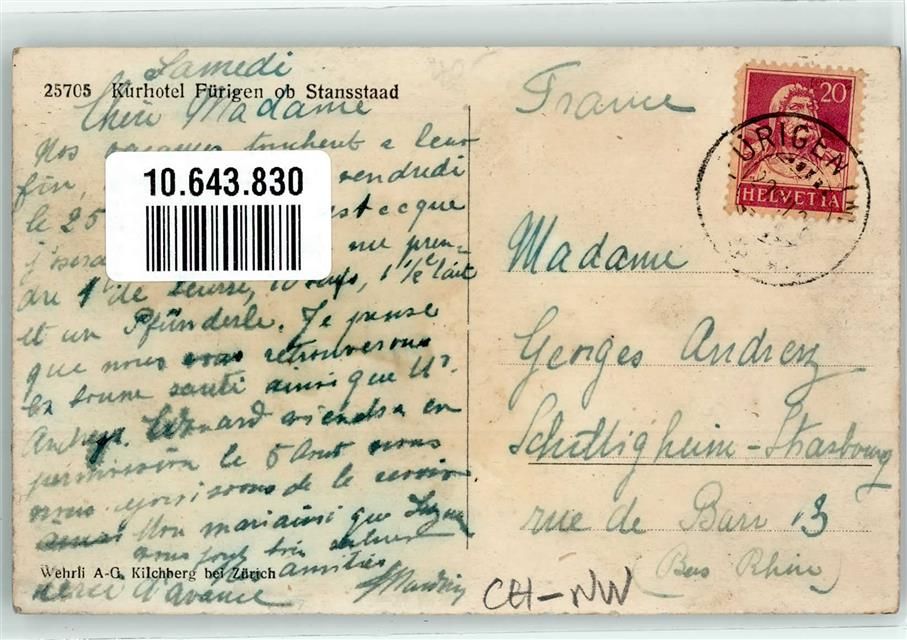 Samedi
25705 Kurhotel Fürigen ob Stansstaad
Chère Madame
Nos vacances touchent a leur
fin, vendredi
le 25 est ce que
j'oserai me pren-
dre 1 lb de beurre, 10 oeufs, 1 l ½ lait
et un Pfünderle. Je pense
que nous vous retrouverons
en bonne santé ainsi que Mr.
Andrez. Edouard viendra en
permission le 5 Aout nous
nous rejouissons de le revoir
Mon mari ainsi que
vous font
amitiés
Wehrli A-G, Kilchberg bei Zürich
merci d'avance
10.643.830
France
20
HELVETIA
FÜRIGEN
Madame
Georges Andrez
Schiltigheim-Strasbourg
rue de Barr 13
(Bas Rhin)
CH-NW